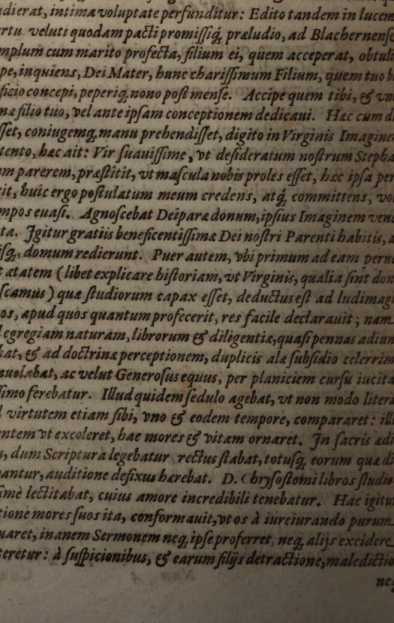 dierat, intima voluptate perfunditur: Edito tandem in lucem
rtu veluti quodam pacti promissiq́, præludio, ad Blachernense
mplum cum marito profecta, filium ei, quem acceperat, obtuli
pe, inquiens, Dei Mater, hunc charissimum Filium, quem tuo b
ficio concepi, peperiq́, nono post mense. Accipe quem tibi, & vn
næ filio tuo, vel ante ipsam conceptionem dedicaui. Hæc cum di
sset, coniugemq́, manu prehendisset, digito in Virginis Imagine
tento, hæc ait: Vir suauissime, vt desideratum nostrum Stepha
m parerem, præstitit, vt mascula nobis proles esset, hæc ipsa per
cit, huic ergo postulatum meum credens, atq́, committens, vo
mpos euasi. Agnoscebat Deiparæ donum, ipsius Imaginem vene
ta. Igitur gratiis beneficentissimæ Dei nostri Parenti habitis, a
isq́, domum redierunt. Puer autem, vbi primum ad eam perue
t ætatem (libet explicare historiam, vt Virginis, qualia sint don
scamus) quæ studiorum capax esset, deductus est ad ludimagi
os, apud quos quantum profecerit, res facile declarauit; nam
l egregiam naturam, librorum & diligentia, quasi pennas adiun
bat, & ad doctrinæ perceptionem, duplicis alæ subsidio celerrim
auolabat, ac velut Generosus equus, per planiciem cursu iucita
simo ferebatur. Illud quidem sedulo agebat, vt non modo litera
d virtutem etiam sibi, vno & eodem tempore, compararet: illæ
entem vt excoleret, hæ mores & vitam ornaret. In sacris ædi
s, dum Scriptura legebatur rectus stabat, totusq́, eorum quæ di
bantur, auditione defixus hærebat. D. Chrysostomi libros studio
simè lectitabat, cuius amore incredibili tenebatur. Hac igitu
tione mores suos ita, conformauit, vt os à iureiurando purum
uaret, inanem Sermonem neq́, ipse proferret, neq́, aliis excidere
teretur: à suspicionibus, & earum filijs detractione, maledictio
neq́